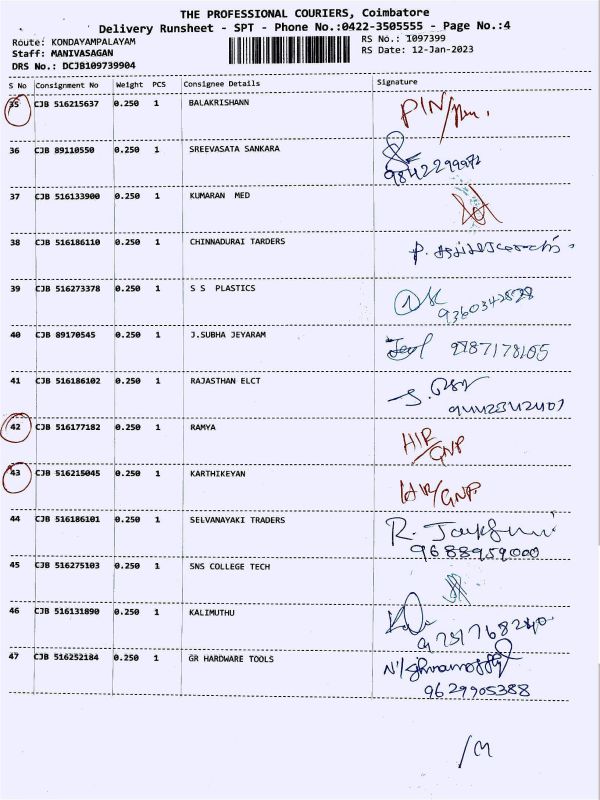 THE PROFESSIONAL COURIERS, Coimbatore
Delivery Runsheet - SPT - Phone No.:0422-3505555 - Page No.:4
Route: KONDAYAMPALAYAM RS No.: 1097399
Staff: MANIVASAGAN RS Date: 12-Jan-2023
DRS No.: DCJB109739904
S No Consignment No Weight PCS Consignee Details Signature
35 CJB 516215637 0.250 1 BALAKRISHANN PIN/
36 CJB 89110550 0.250 1 SREEVASATA SANKARA
37 CJB 516133900 0.250 1 KUMARAN MED
38 CJB 516186110 0.250 1 CHINNADURAI TARDERS
39 CJB 516273378 0.250 1 S S PLASTICS
9360342828
40 CJB 89170545 0.250 1 J.SUBHA JEYARAM
41 CJB 516186102 0.250 1 RAJASTHAN ELCT
42 CJB 516177182 0.250 1 RAMYA HIR/GNP
43 CJB 516215045 0.250 1 KARTHIKEYAN HIR/GNP
44 CJB 516186101 0.250 1 SELVANAYAKI TRADERS
9688959000
45 CJB 516275103 0.250 1 SNS COLLEGE TECH
46 CJB 516131890 0.250 1 KALIMUTHU
9751768240
47 CJB 516252184 0.250 1 GR HARDWARE TOOLS
9629905388